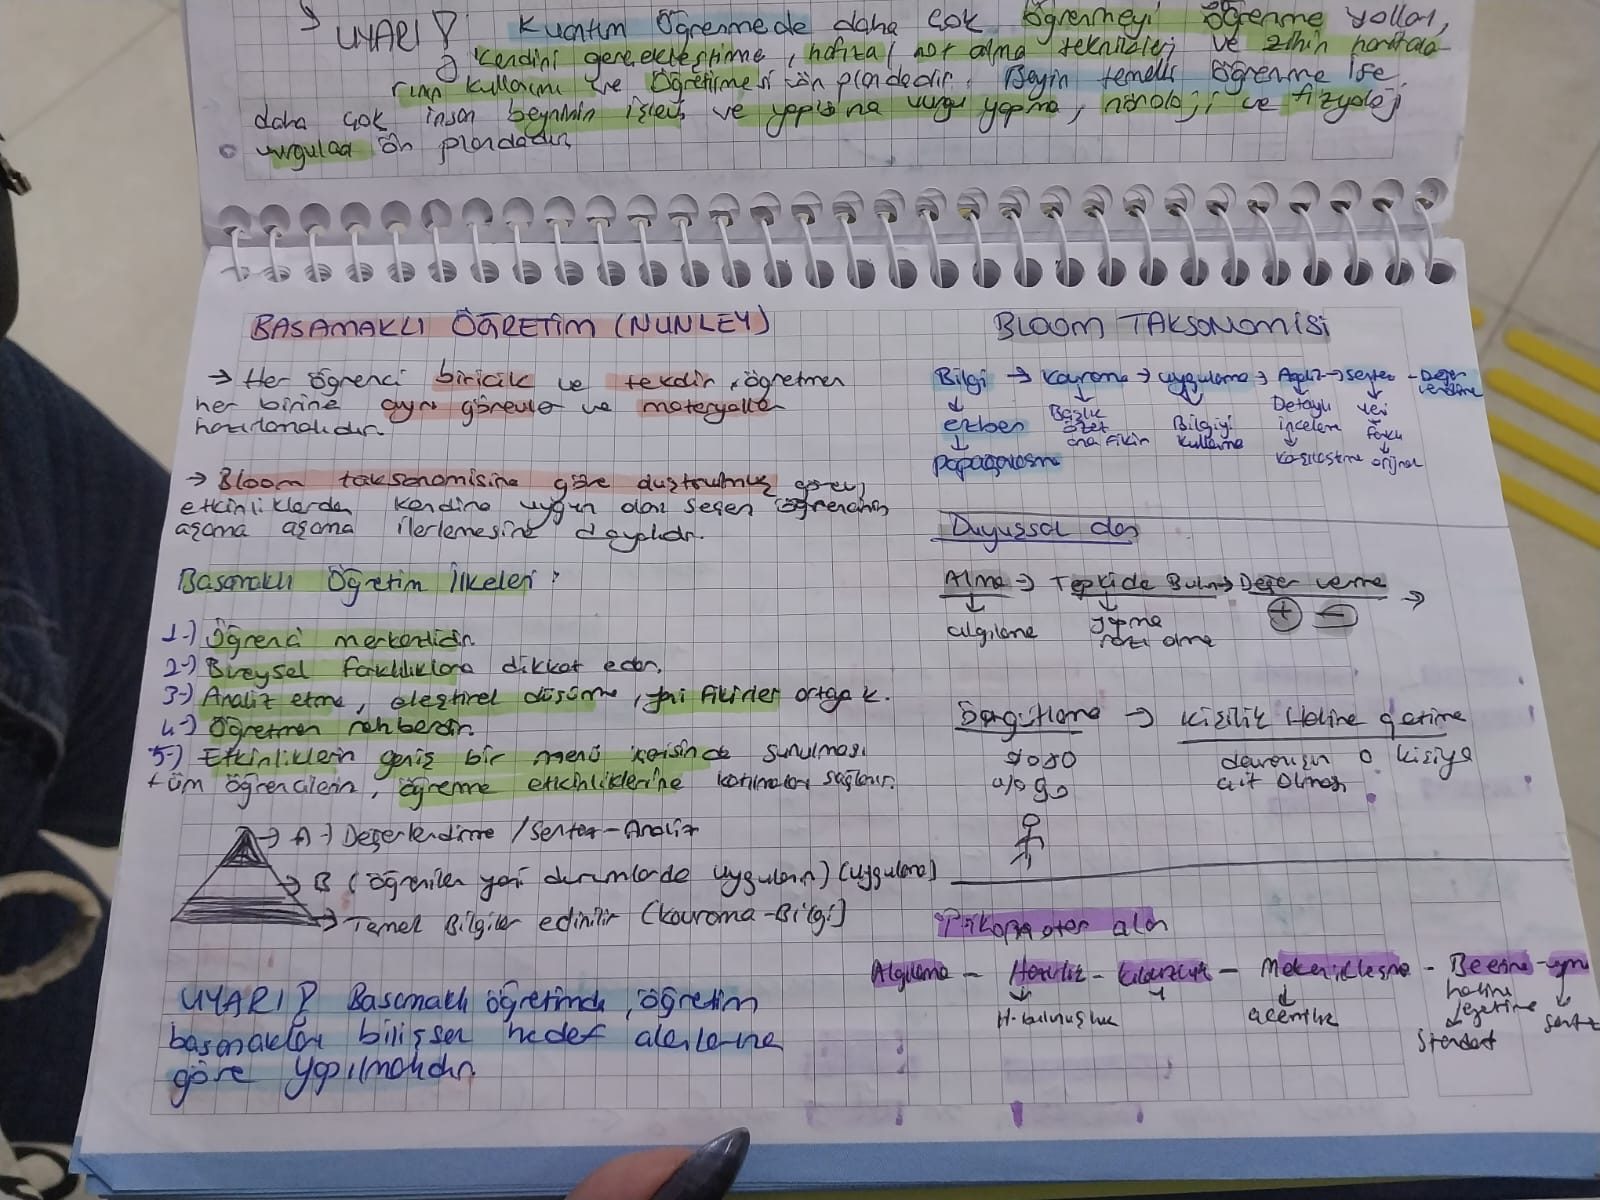 UYARI! Kuantum Öğrenmede daha çok öğrenmeyi öğrenme yolları,
kendini gerçekleştirme, hafıza, not alma teknikleri ve zihin haritala
rının kullanımı ve öğretilmesi ön plandadır. Beyin temelli öğrenme ise,
daha çok insan beyninin işleyiş ve yapısına vurgu yapma, nöroloji ve fizyoloji
vurguları ön plandadır.
BASAMAKLI ÖĞRETİM (NUNLEY)
→ Her öğrenci biricik ve tekdir, öğretmen
her birine ayrı görevler ve materyaller
hazırlamalıdır.
→ Bloom taksonomisine göre oluşturulmuş görev,
etkinliklerden kendine uygun olanı seçen öğrencinin
aşama aşama ilerlemesine dayalıdır.
Basamaklı Öğretim İlkeleri:
1-) Öğrenci merkezlidir.
2-) Bireysel farklılıklara dikkat eder.
3-) Analiz etme, eleştirel düşünme, yeni fikirler ortaya k.
4-) Öğretmen rehberdir.
5-) Etkinliklerin geniş bir menü içerisinde sunulması
tüm öğrencilerin, öğrenme etkinliklerine katılmaları sağlanır.
→ A-) Değerlendirme / Sentez - Analiz
→ B (öğrenilen yeni durumlarda uygulanır) (uygulama)
→ Temel Bilgiler edinilir (kavrama - Bilgi)
UYARI! Basamaklı öğretimde, öğretim
basamakları bilişsel hedef alanlarına
göre yapılmalıdır.
BLOOM TAKSONOMİSİ
Bilgi → Kavrama → uygulama → Analiz → sentez - Değer
lendirme
ezber
papağanlaşma
Başlık
özet
ana fikir
Bilgiyi
kullanma
Detaylı
inceleme
karşılaştırma
veri
farklı
orijinal
Duyuşsal alan
Alma → Tepkide Bulun → Değer verme →
algılama
yapma
razı olma
+ −
Örgütleme → Kişilik Haline getirme
davranışın o kişiye
ait olması
Psikomotor alan
Algılama - Hazırlık - Kılavuzluk - Mekanikleşme - Beceri - uyum
haline
getirme
H. bulunuşluk
acemilik
standart